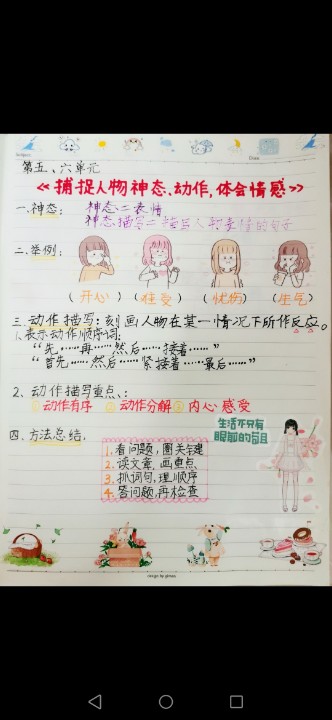 第五、六单元
《捕捉人物神态、动作,体会情感》
一.神态:神态=表情
神态描写=描写人物表情的句子
二.举例:
(开心) (难受) (忧伤) (生气)
三.动作描写:刻画人物在某一情况下所作反应。
1.表示动作顺序词:
“先……再……然后……接着……”
“首先……然后……紧接着……最后……”
2、动作描写重点:
①动作有序 ②动作分解 ③内心感受
四、方法总结:
1.看问题,圈关键
2.读文章,画重点
3.抓词句,理顺序
4.答问题,再检查
生活不只有
眼前的苟且